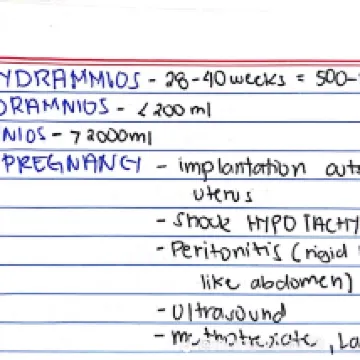 YDRAMMIOS - 28-40 weeks = 500-
DRAMNIOS - < 200 ml
NIOS - 72000ml
PREGNANCY - implantation outs
uterus
- Shock HYPOTACHY
- Peritonitis (rigid
like abdomen)
- Ultrasound
- methotrexate, La